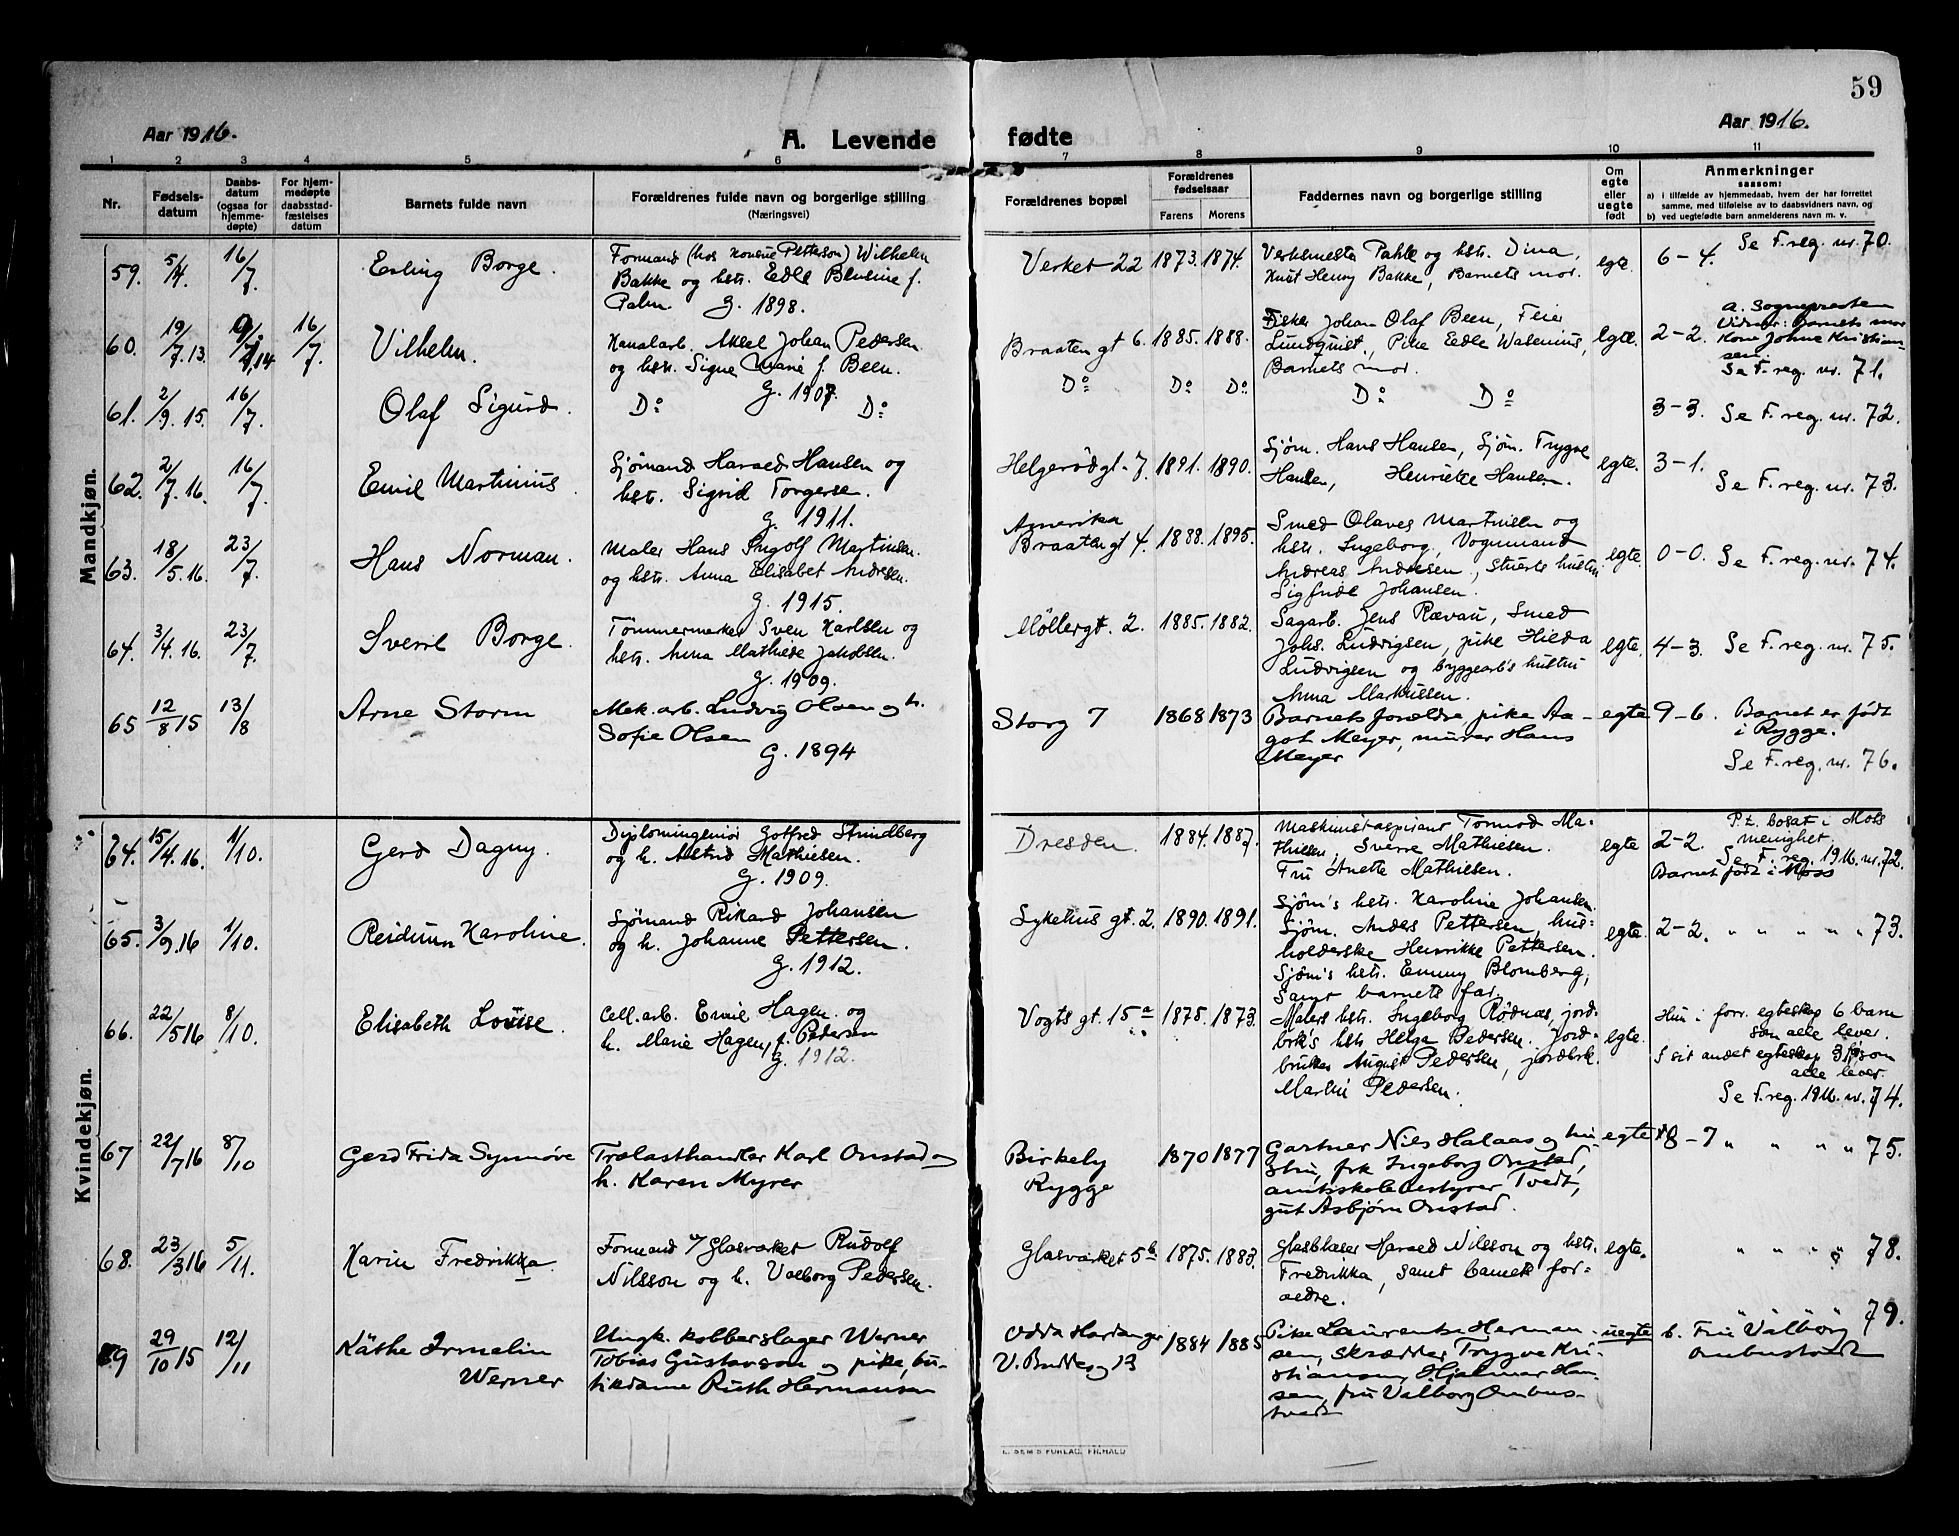 59
Aar 1916.
A. Levende fødte
Aar 1916.
1 2 3 4 5 6 7 8 9 10 11
Nr.
Fødsels-
datum
Daabs-
datum
(ogsaa for
hjemme-
døpte)
For hjem-
medøpte
daabsstad-
fæstelses
datum
Barnets fulde navn
Forældrenes fulde navn og borgerlige stilling
(Næringsvei)
Forældrenes bopæl
Forældrenes
fødselsaar
Farens Morens
Faddernes navn og borgerlige stilling
Om
egte
eller
uegte
født
Anmerkninger
saasom:
a) i tilfælde av hjemmedaab, hvem der har forrettet
samme, med tilføielse av to daabsvidners navn, og
b) ved uegtefødte barn anmelderens navn m. v.
Mandkjøn.
59. 5/4. 16/7. Erling Borge.
Formand (hos Petterson) Wilhelm
Bakke og hstr. Edle f.
Palm G. 1898.
Verket 22 1873. 1874.
Verksmester Pahle og hstr. Dina,
Knut Henry Bakke, Barnets mor.
egte. 6-4. Se F.reg. nr. 70.
60. 19/7.13. 16/7. Vilhelm.
Kanalarb. Aksel Johan Pedersen
og hstr. Signe Marie f. Been.
G. 1907.
Braaten gt 6. 1885. 1888.
Fisker Johan Olaf Been, Feier
Lundquist, Pike Edle Wasenius,
Barnets mor.
egte. 2-2.
a. Sognepresten
Vidner: Barnets mor
Kone Johne Kristian-
sen
Se F. reg. nr. 71.
61. 2/9. 15. 16/7. Olaf Sigurd.
Do Do
Do Do Do Do Do
3-3. Se F. reg. nr. 72.
62. 2/7. 16. 16/7. Emil Martinius.
Sjømand Harald Hansen og
hstr. Sigrid Torgersen.
G. 1911.
Helgerødgt. 7. 1891. 1890.
Sjøm. Hans Hansen, Sjøm. Trygve
Hansen, Henriette Hansen.
egte. 3-1.
Se F. reg. nr. 73.
63. 18/5. 16. 23/7. Hans Norman.
Maler Hans Ingolf Martinsen
og hstr. Anna Elisabet Andresen.
G. 1915.
Amerika
Braatengt 4. 1888. 1895.
Smed Olaves Martinsen og
hstr. Ingeborg, Vognmand
Andreas Andresen, Stuerts hustru
Sigfride Johansen.
egte. 0-0. Se F. reg. nr. 74.
64. 3/4. 16. 23/7. Sverre Borge.
Tømmermerker Sven Karlsen og
hstr. Anna Mathilde Jakobsen.
G. 1909.
Møllergt. 2. 1885. 1882.
Sagarb. Jens Rævau, Smed
Johs. Ludvigsen, pike Hilda
Ludvigsen og byggearb's hustru
Anna Markussen.
egte. 4-3. Se F. reg. nr. 75.
65 12/8 15 13/8 Arne Storm
Mek. arb. Ludvig Olsen og h.
Sofie Olsen
G. 1894
Storg 7 1868 1873
Barnets forældre, pike Aa-
got Meyer, murer Hans
Meyer
egte 9-6. Barnet er født
i Rygge.
Se F. reg. nr. 76.
Kvindekjøn.
64. 15/4. 16. 1/10. Gerd Dagny.
Diplomingeniør Gotfred Strindberg
og h. Astrid Mathiesen.
G. 1909.
Dresden. 1884. 1887.
Maskinistaspirant Tormod Ma-
thiesen, Sverre Mathiesen.
Fru Anette Mathiesen.
egte 2-2.
P.t. bosat i Moss
menighet.
Se F. reg. 1916. nr. 72.
Barnet født i Moss
65. 3/9.16 1/10. Reidun Karoline.
Sjømand Rikard Johansen
og h. Johanne Pettersen.
G. 1912.
Sykehus gt. 2. 1890. 1891.
Sjøm's hstr. Karoline Johansen.
Sjøm. Anders Pettersen, hus-
holderske Henrikke Pettersen.
Sjøm's hstr. Emmy Blomberg,
samt barnets far.
egte. 2-2. " " " " " 73.
66. 22/5 16 8/10. Elisabeth Louise.
Cell. arb. Emil Hagen og
h. Marie Hagen, f. Pedersen
G. 1912.
Vogts gt. 15a 1875. 1873.
Malers hstr. Ingeborg Rødnas, jord-
brk's hstr Helga Pedersen. Jord-
bruker August Pedersen, jordbrk.
Martin Pedersen.
egte.
Hun i forr. egteskap 6 barn
som alle lever.
I sit andet egteskap 3 som
alle lever.
Se F.reg. 1916. nr. 74.
67 22/7 16 8/10 Gerd Frida Synnøve
Trælasthandler Karl Onstad og
h. Karen Myrer
Birkely
Rygge
1870 1877
Gartner Niels Halaas og hu-
stru, frk Ingeborg Onstad,
amtsskolebestyrer Tvedt,
gut Asbjørn Onstad.
egte 8-7 " " " " 75.
68. 23/3 16 5/11. Karin Fredrikka.
Formand v/ Glasværket Rudolf
Nilsson og h. Valborg Pedersen.
Glasværket 5b 1875. 1883.
Glasblåser Harald Nilsson og hstr.
Fredrikka, samt barnets for-
ældre.
egte. " " " " 78.
69 29/10 15 12/11 Käthe Irmelin
Werner
Ungk. kobberslager Werner
Tobias Gustavson og pike, bu-
tikdame Ruth Hermansen
Odda Hardanger
V. 13
1884 1885
Pike Laurentze Herman-
sen, skrædder Trygve Kri-
stiansen, Hjalmar Han-
sen, fru Valborg Ombus-
tvedt
uegte
" " " 79.
b. Fru Valborg
Ombustvedt
E. SEM'S FORLAG. FR.HALD